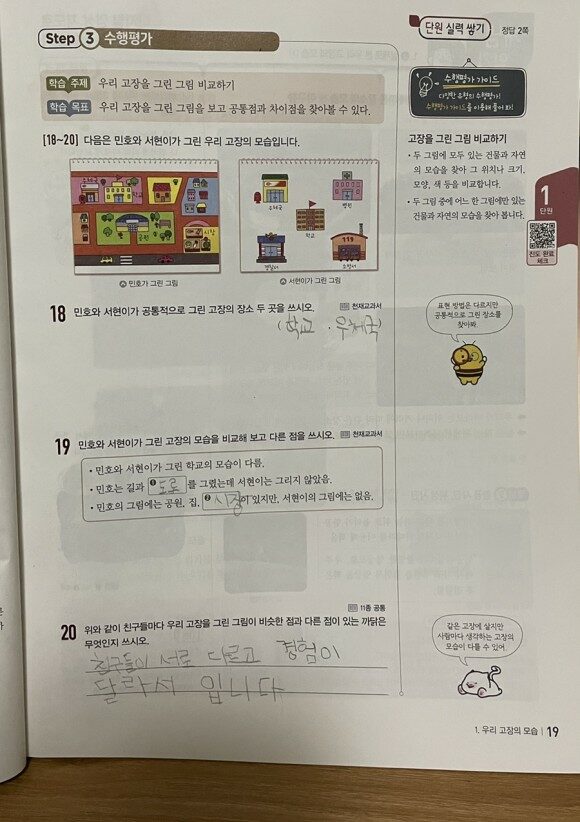 Step 3 수행평가
단원 실력 쌓기
정답 2쪽
학습 주제 우리 고장을 그린 그림 비교하기
학습 목표 우리 고장을 그린 그림을 보고 공통점과 차이점을 찾아볼 수 있다.
수행평가 가이드
다양한 유형의 수행평가!
수행평가 가이드를 이용해 풀어 봐!
[18~20] 다음은 민호와 서현이가 그린 우리 고장의 모습입니다.
우체국
공원
시장
우체국
병원
학교
경찰서
119
소방서
민호가 그린 그림
서현이가 그린 그림
고장을 그린 그림 비교하기
• 두 그림에 모두 있는 건물과 자연
의 모습을 찾아 그 위치나 크기,
모양, 색 등을 비교합니다.
• 두 그림 중에 어느 한 그림에만 있는
건물과 자연의 모습을 찾아 봅니다.
1
단원
진도 완료
체크
18 민호와 서현이가 공통적으로 그린 고장의 장소 두 곳을 쓰시오. 천재교과서
(학교 · 우체국)
표현 방법은 다르지만
공통적으로 그린 장소를
찾아봐.
19 민호와 서현이가 그린 고장의 모습을 비교해 보고 다른 점을 쓰시오. 천재교과서
• 민호와 서현이가 그린 학교의 모습이 다름.
• 민호는 길과 ❶ 도로 를 그렸는데 서현이는 그리지 않았음.
• 민호의 그림에는 공원, 집, ❷ 시장 이 있지만, 서현이의 그림에는 없음.
11종 공통
20 위와 같이 친구들마다 우리 고장을 그린 그림이 비슷한 점과 다른 점이 있는 까닭은
무엇인지 쓰시오.
친구들이 서로 다르고 경험이
달라서 입니다
같은 고장에 살지만
사람마다 생각하는 고장의
모습이 다를 수 있어.
1. 우리 고장의 모습 | 19